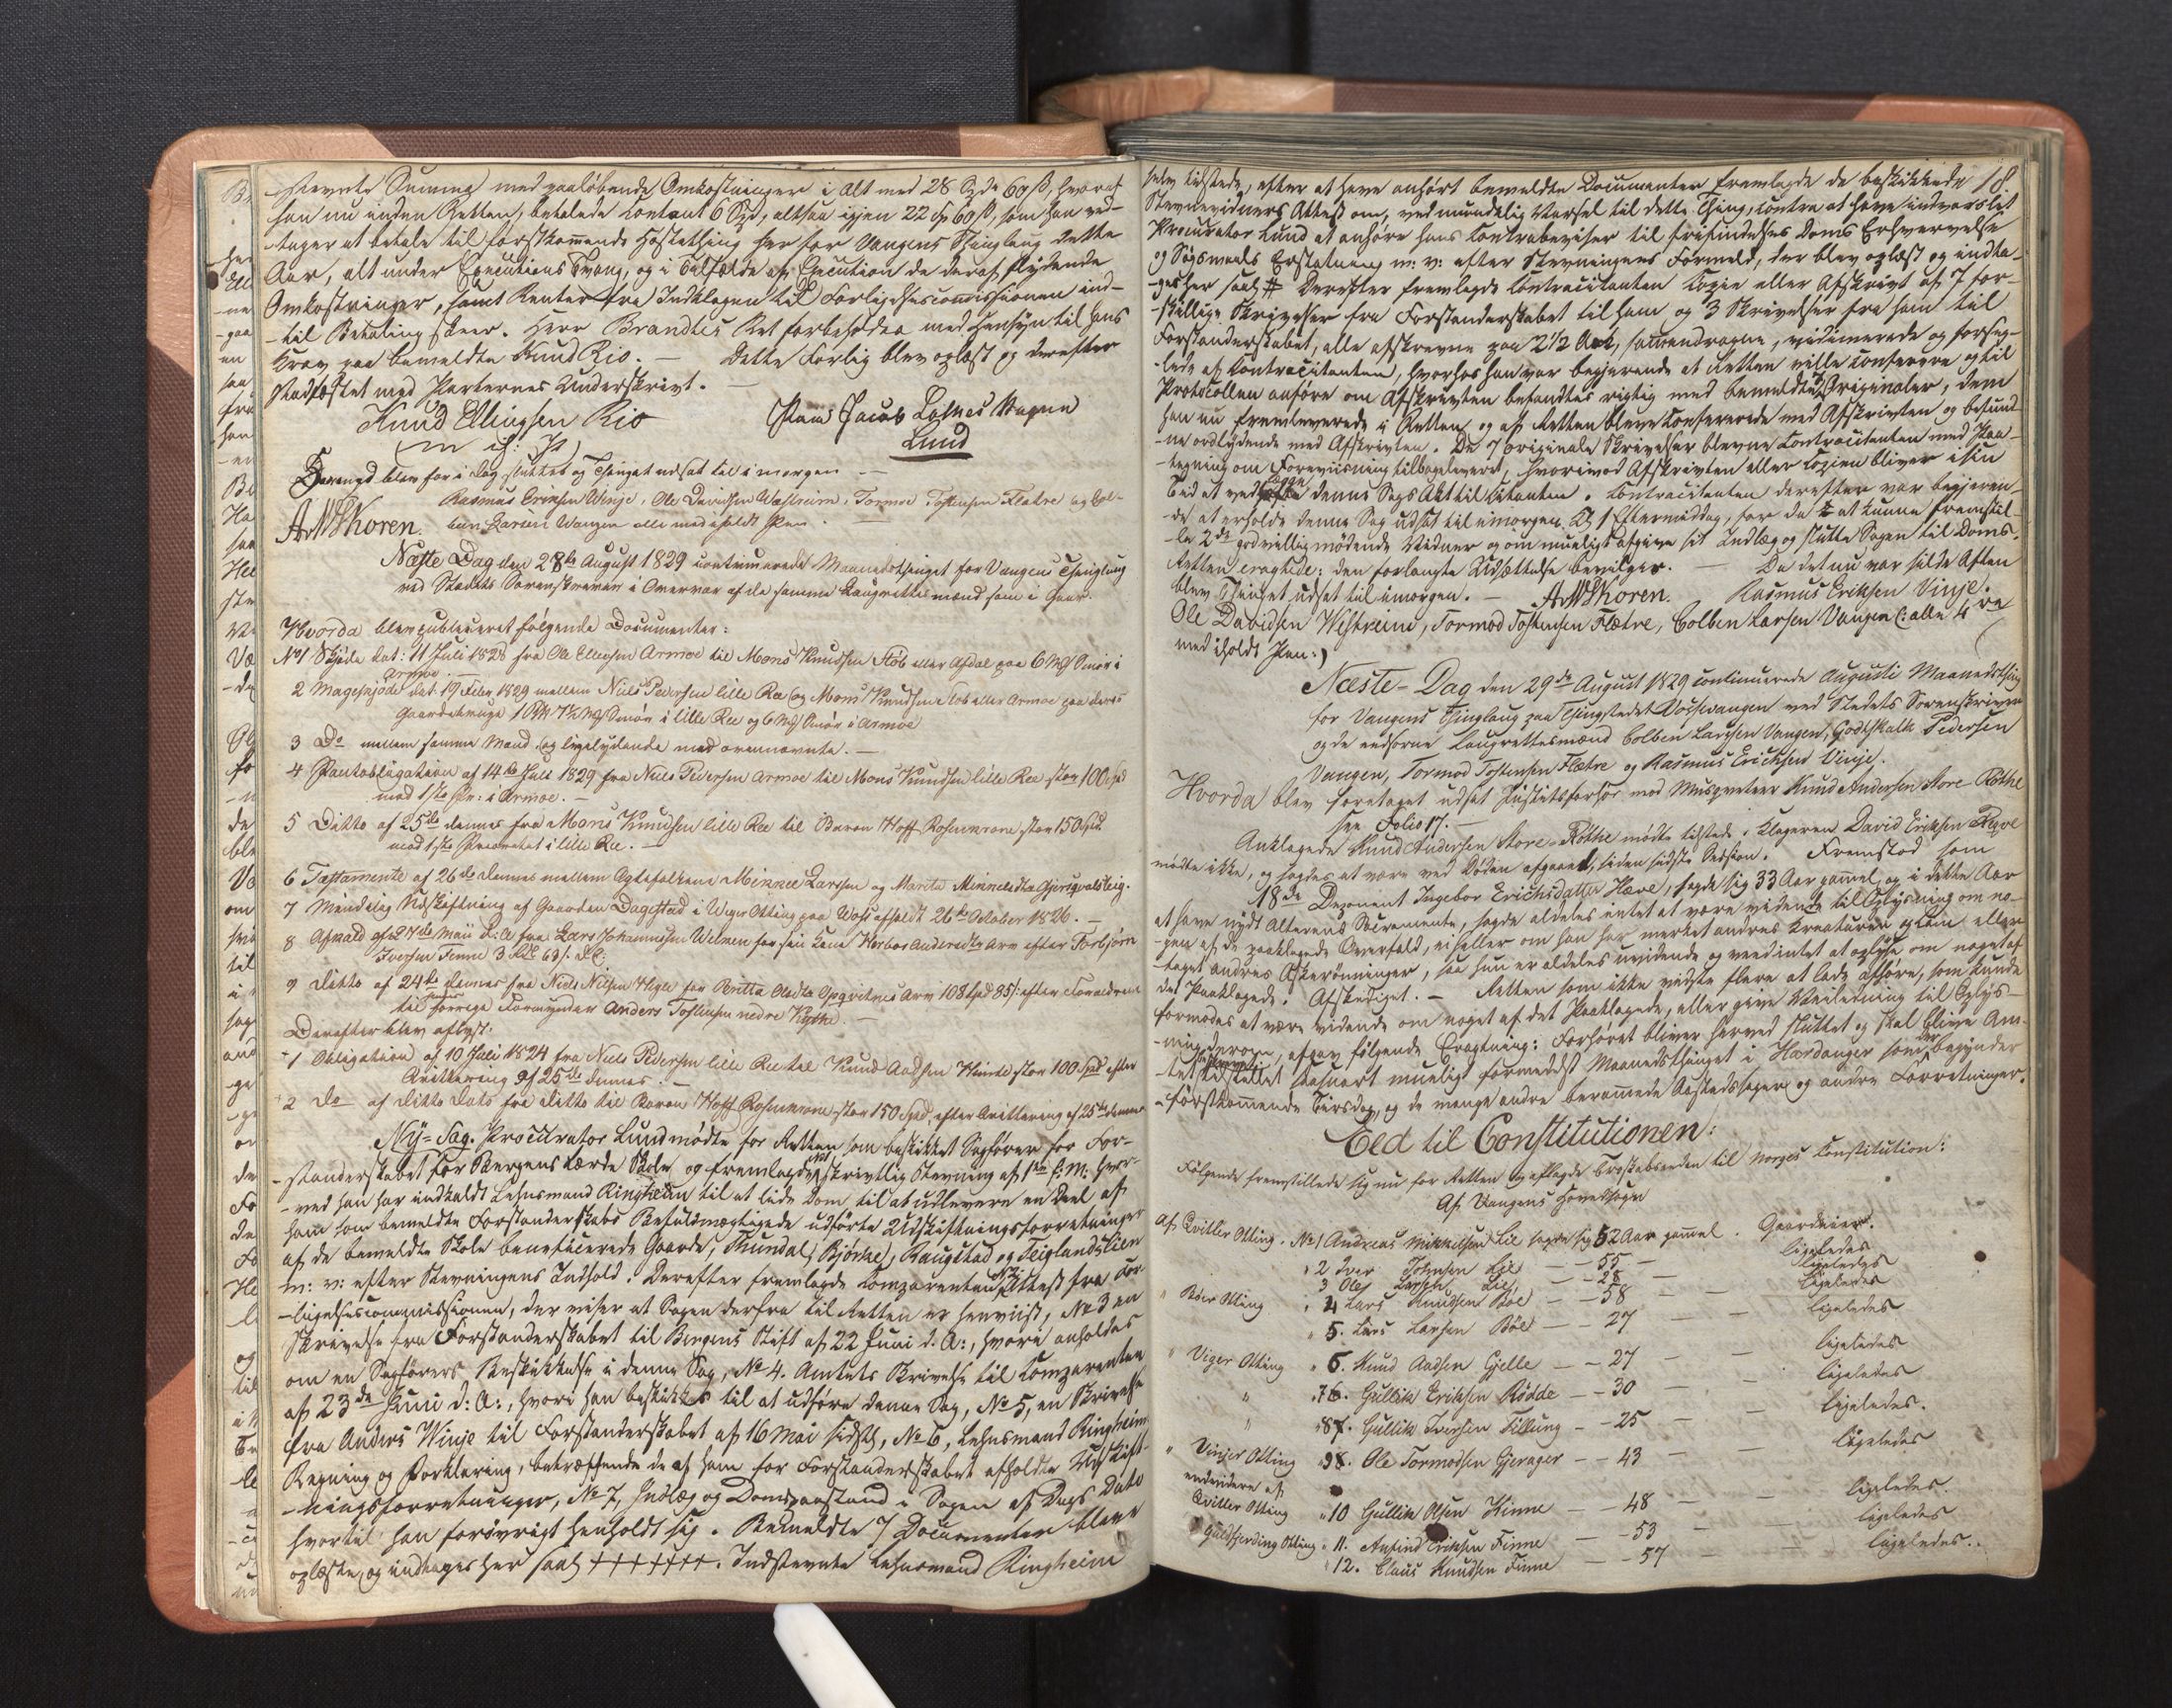 stævnte Summa med paaløbende Omkostninger i alt med 28 Spd 60 ß, hvoraf
han nu inden Retten, betalede contant 6 Spd, altsaa igjen 22 Sp 60 ß, som han ved-
tager at betale til førstkommende Høstething her for Vangens Thinglaug dette
Aar, alt under Executions Tvang, og i Tilfælde af Execution de deraf flydende
Omkostninger, samt Renter fra Indklagen til Forligelsescommissionen ind-
til Betaling skeer. Herr Brandtes Ret forbeholdes med Hensyn til hans
Krav paa bemeldte Knud Rio. — Dette Forlig blev oplæst og derefter
stadfæstet med Parternes Underskrivt. —
Knud Ellingsen Rio
m. ih. P.
Hans Jacob Lohnes Vegne
Lund
Saaledes blev for i dag sluttet og Thinget udsat til i morgen. —
Rasmus Eriksen Winje, Ole Davidsen Wæstreim, Tormoe Tostensen Flatre og Col-
A W S Koren ben Larsen Wangen alle med iholdt Pen. —
Næste Dag den 28de August 1829 continuerede Maanedsthinget for Vangens Thinglaug
ved Stedets Sorenskriver i Overvær af de samme Laugrettesmænd som i Gaar.
Hvorda blev publiceret følgende Documenter:
No 1 Skjøde dat: 11 Juli 1828 fra Ole Ellevsen Armoe til Mons Knudsen Støb eller Afdal paa 6 Mk Smør i
Armoe. —
2 Mageskjøde dat: 19 Febr 1829 mellem Niels Pedersen lille Ree og Mons Knudsen Støb eller Armoe paa deres
Gaardebruge 1 Pd 7½ Mk Smør i lille Ree og 6 Mk Smør i Armoe
3 Do mellem samme Mænd og ligelydende med ovennævnte. —
4 Pantobligation af 14de Juli 1829 fra Niels Pedersen Armoe til Mons Knudsen lille Ree stor 100 Spd
med 1ste Pr: i Armoe. —
5 Ditto af 25de dennes fra Mons Knudsen lille Ree til Baron Hoff Rosenkrone stor 150 Spd
med 1ste Prioritet i lille Ree. —
6 Testamente af 26de dennes mellem Ægtefolkene Minnee Larsen og Marita Minnelsdtr Gjerqvalsteig.
7 Mindelig Udskiftning af Gaarden Dagestad i Wiger Otting paa Woss afholdt 26de October 1826. —
8 Afkald af 27de Maii d: A fra Lars Johannesen Wilmen for sin Kone Herbor Andersdtr Arv efter Torbjørn
Iversen Finne 3 Spd 63 ß
9 Ditto af 24de dennes fra Niels Nilsen Hyle for Britta Olsdtr Opqvitnes Arv 108 Spd 85 ß efter Forældrene
til forrige Formynder Anders Tostensen nedre Kythe. —
Derefter blev aflyst:
1 Obligation af 10 Juli 1824 fra Niels Pedersen lille Ree til Knud Aadsen Hinle stor 100 Spd efter
Qvittering af 25de dennes. —
2 Do af ditto Dato fra ditto til Baron Hoff Rosenkrone stor 150 Spd, efter Qvittering af 25de dennes
Ny-Sag. Procurator Lund mødte for Retten som beskikket Sagfører for For-
standerskabet for Bergens lærde Skole og fremlagde skrivtlig Stævning af 1ste f: M: hvor-
ved han har indkaldt Lehnsmand Ringheim til at lide Dom til at udlevere en Deel af
ham som bemeldte Forstanderskabs Befuldmægtigede udførte Udskiftningsforretninger
af de bemeldte Skole beneficerede Gaarde, Thundal, Bjørke, Haugstad og Teiglandslien
m: v: efter Stævningens Indhold. Derefter fremlagde Comparenten No 2 Attest fra For-
ligelsescommissionen, der viser at Sagen derfra til Retten er henviist, No 3 en
Skrivelse fra Forstanderskabet til Bergens Stift af 22 Juni d: A:, hvori anholdes
om en Sagførers Beskikkelse i denne Sag, No 4. Amtets Skrivelse til Comparenten
af 23de Juni d: A:, hvori han beskikkes til at udføre denne Sag, No 5, en Skrivelse
fra Anders Winje til Forstanderskabet af 16 Mai sidstl, No 6, Lehnsmand Ringheim
Regning og Forklaring, betræffende de af ham for Forstanderskabet afholdte Udskift-
ningsforretninger, No 7, Indlæg og Domspaastand i Sagen af Dags Dato
hvortil han forøvrigt henholdt sig. Bemeldte 7 Documenter bleve
oplæste, og indtages her saal +++++++. Indstævnte Lehnsmand Ringheim
selv tilstede, efter at have anhørt bemeldte Documenter fremlagde de beskikkede 18
Stævnevidners Attest om, ved mundtlig Varsel til dette Thing, contra at have indvarslet
Procurator Lund at anhøre hans Contrabeviser til frifindelses Doms Erhvervelse
og Søgsmaals Erstatning m: v: efter Stævningens Formeld, der blev oplæst og indta-
ges her saal # Derefter fremlagde Contracitanten Copie eller Afskrivt af 7 for-
skjellige Skrivelser fra Forstanderskabet til ham og 3 Skrivelser fra ham til
Forstanderskabet, alle afskrevne paa 2½ Ark, sammendragne, vidimerede og forseg-
lede af Contracitanten, hvorhos han var begjerende at Retten ville conferere og til
Protocollen anføre om Afskrivten befandtes rigtig med bemeldte Originaler, dem
han nu fremleverede i Retten og af Retten bleve confererede med Afskrivten og befund-
ne ordlydende med Afskrivten. De 7 originale Skrivelser blevne Contracitanten med Paa-
tegning om Foreviisning tilbageleveret, hvorimod Afskrivten eller Copien bliver i sin
Tid at vedlægge denne Sags Akt til Citanten. Contracitanten derefter var begjeren-
de at erholde denne Sag udsat til imorgen Kl 1 Eftermiddag, for da at kunne fremstil-
le 2de godvillig mødende Vidner og om mueligt afgive sit Indlæg og slutte Sagen til Doms.
Retten eragtede: den forlangte Udsættelse bevilges. — Da det nu var silde Aften
blev Thinget udsat til imorgen. — A W S Koren. Rasmus Eriksen Vinje.
Ole Davidsen Westreim, Tormod Tostensen Flætre, Colben Larsen Vangen (: alle 4re
med iholdt Pen:)
Næste-Dag den 29de August 1829 continuerede Augusti Maanedsthing
for Vangens Thinglaug paa Thingstedet Vossevangen ved Stedets Sorenskriver
og de eedsorne Laugrettesmænd Colben Larsen Vangen, Godtskalk Pedersen
Vangen, Tormod Tostensen Flætre og Rasmus Erichsen Vinje.
Hvorda blev foretaget udsat Justitsforhør mod Musqveteer Knud Andersen Store-Røthe
see Folio 17. —
Anklagede Knud Andersen Store-Røthe mødte tilstede. Klageren David Eriksen Rogve
mødte ikke, og sagdes at være ved Døden afgaaet, siden sidste Session. Fremstod som
18de Deponent Ingebor Erichsdatter Hæve, sagde sig 33 Aar gammel og i dette Aar
at have nydt Alterens Sacramente, sagde aldeles intet at være vidende til Oplysning om no-
gen af de paaklagede Overfald, ei heller om han har merket andres Kreaturer og Lein eller
taget andres Askerønninger, saa hun er aldeles uvidende og veed intet at oplyse om noget af
det Paaklagede. Afskediget. — Retten som ikke vidste flere at lade afhøre, som kunde
formodes at være vidende om noget af det Paaklagede, eller give Veiledning til Oplys-
ning derom, afgav følgende Eragtning: Forhøret bliver herved sluttet og skal blive Am-
tet tilstillet snarest mueligt formedelst Maanedsthinget i Hardanger som der begynder
førstkommende Tirsdag, og de mange andre berammede Aastedssager og andre Forretninger.
Eed til Constitutionen:
Følgende fremstillede sig nu for Retten og aflagde Troskabseeden til Norges Constitution:
Af Vangens Hovedsogn
Af Qvitler Otting. No 1 Andreas Mikkelsen Lie sagde sig 52 Aar gammel. Gaardeier.
" 2 Iver Johnsen Lie — — 55 — ligeledes
3 Ole Larsen Lie — — 28 — ligeledes
" Bøer Otting " 4 Lars Knudsen Bøe — — 58 — — ligeledes
" 5. Lars Larsen Bøe — — 27 ligeledes
" Viger Otting " 6. Knud Aadsen Gjelle — — 27 — — ligeledes
" " 7. Gullik Eriksen Rødde — — 30 — ligeledes
" " 8. Gullik Iversen Tillung — — 25 — — ligeledes.
" Vinjer Otting " 9. Ole Tormodsen Gjerager — — 43 — ligeledes
endvidere af
Qvitler Otting " 10 Gullik Olsen Hinne — — 48 — — ligeledes.
" Guldfjerding Otting " 11. Anfind Eriksen Finne — — 53 — — ligeledes
" 12. Claus Knudsen Finne — — 57 — — ligeledes..